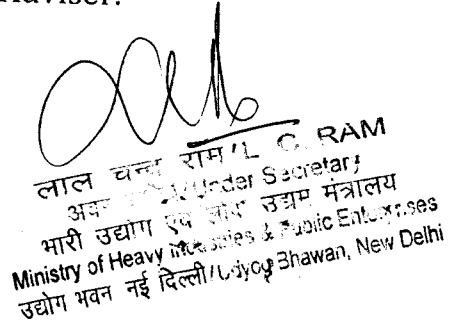 Adviser.
लाल चन्द राम/L. C. RAM
अवर /Under Secretary
भारी उद्योग एवं लोक उद्यम मंत्रालय
Ministry of Heavy Industries & Public Enterprises
उद्योग भवन नई दिल्ली/Udyog Bhawan, New Delhi